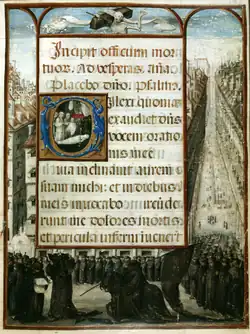 Incipit officium mor
tuor. Ad vesperas. aña
Placebo dño. psalm9.
Dilexi quoniam
exaudiet dñs
vocem oratio
nis mee
inclinavit aurem
suam michi: et in diebus
meis invocabo
runt me dolores mortis
et pericula inferni invenert